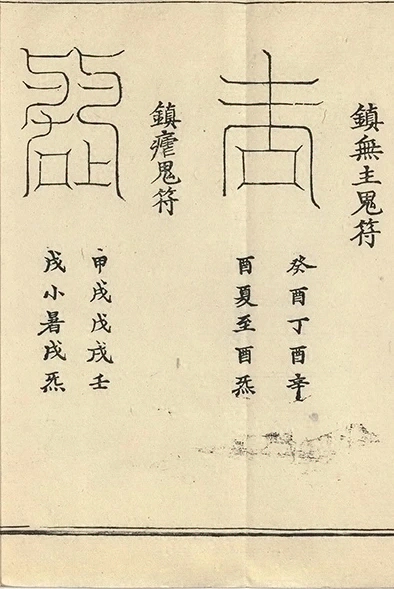 鎮無主鬼符
癸酉丁酉辛
酉夏至酉炁
鎮瘧鬼符
甲戌戊戌壬
戌小暑戌炁